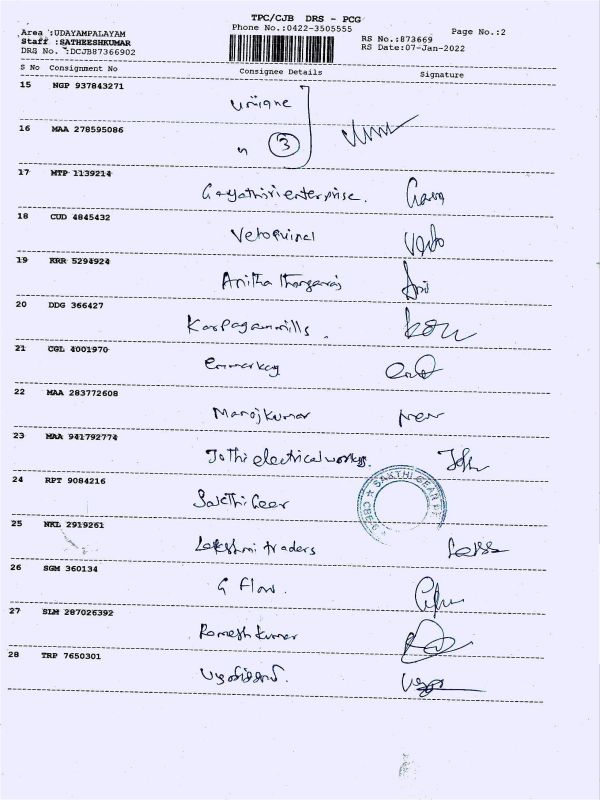 TPC/CJB DRS - PCG
Phone No.:0422-3505555
Page No.:2
Area :UDAYAMPALAYAM
Staff :SATHEESHKUMAR
DRS No. :DCJB87366902
RS No.:873669
RS Date:07-Jan-2022
S No Consignment No Consignee Details Signature
15 NGP 937843271
Unique
16 MAA 278595086
" 3
17 MTP 1139214
Gayathiri enterprise.
18 CUD 4845432
Vetoquinal
19 KRR 5294924
Anitha thangaraj
20 DDG 366427
Karpagam mills
21 CGL 4001970
Emmarkay
22 MAA 283772608
Manoj kumar
23 MAA 941792774
Jothi electrical works.
24 RPT 9084216
Sakthi Geer
SAKTHI GEAR
25 NKL 2919261
Lakshmi traders
26 SGM 360134
G Flow.
27 SLM 287026392
Ramesh kumar
28 TRP 7650301